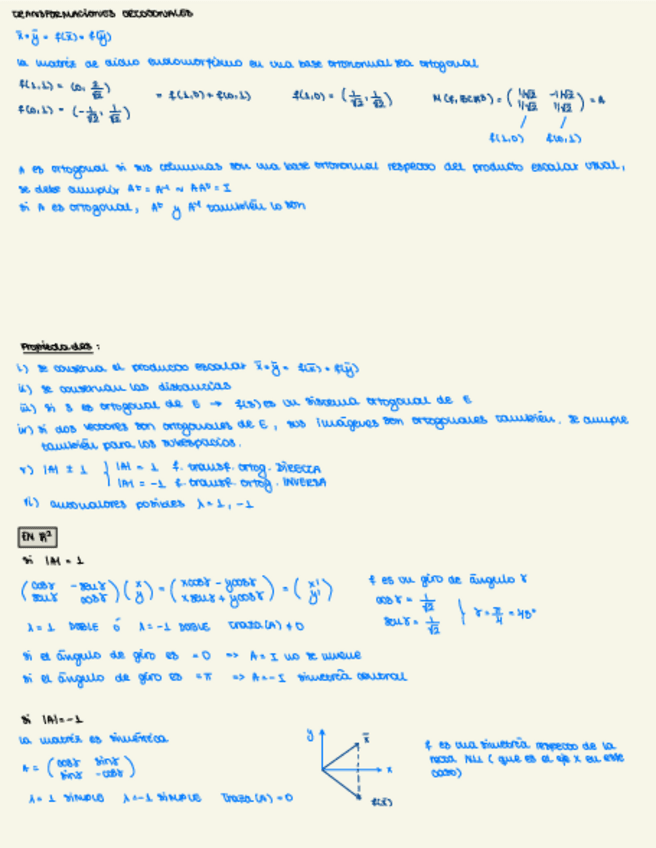 TRANSFORMACIONES ORTOGONALES
x̄·ȳ = f(x̄)·f(ȳ)
la matriz de dicho endomorfismo en una base ortonormal sea ortogonal
f(1,0) = f(0,1)
f(1,0) = (1/√2, 1/√2)
M(f, BCR²) = (1/√2 -1/√2
1/√2 1/√2) = A
f(0,1) = (-1/√2, 1/√2)
f(1,0) f(0,1)
A es ortogonal si sus columnas son una base ortonormal respecto del producto escalar usual,
se debe cumplir Aᵗ = A⁻¹ ~ AAᵗ = I
si A es ortogonal, Aᵗ y A⁻¹ también lo son
Propiedades:
i) se conserva el producto escalar x̄·ȳ = f(x̄)·f(ȳ)
ii) se conservan las distancias
iii) si S es ortogonal de E → f(S) es un sistema ortogonal de E
iv) si dos vectores son ortogonales de E, sus imágenes son ortogonales también. Se cumple
también para los subespacios.
v) |A| ± 1 |A| = 1 f. transf. ortog. DIRECTA
|A| = -1 f. transf. ortog. INVERSA
vi) autovalores posibles λ = 1, -1
EN R²
si |A| = 1
(cosγ -senγ
senγ cosγ) (x
y) = (xcosγ - ycosγ
xsenγ + ycosγ) = (x'
y')
f es un giro de ángulo γ
cosγ = 1/√2
senγ = 1/√2
γ = π/4 = 45°
λ = 1 DOBLE ó λ = -1 DOBLE Traza(A) ≠ 0
si el ángulo de giro es = 0 => A = I no se mueve
si el ángulo de giro es = π => A = -I simetría central
si |A| = -1
la matriz es simétrica
A = (cosγ sinγ
sinγ -cosγ)
λ = 1 SIMPLE λ = -1 SIMPLE Traza(A) = 0
y
x̄
x
f(x̄)
f es una simetría respecto de la
recta
(que es el eje x en este
caso)